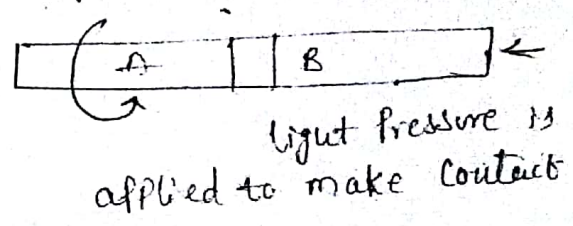 A B
light Pressure is
applied to make Contact